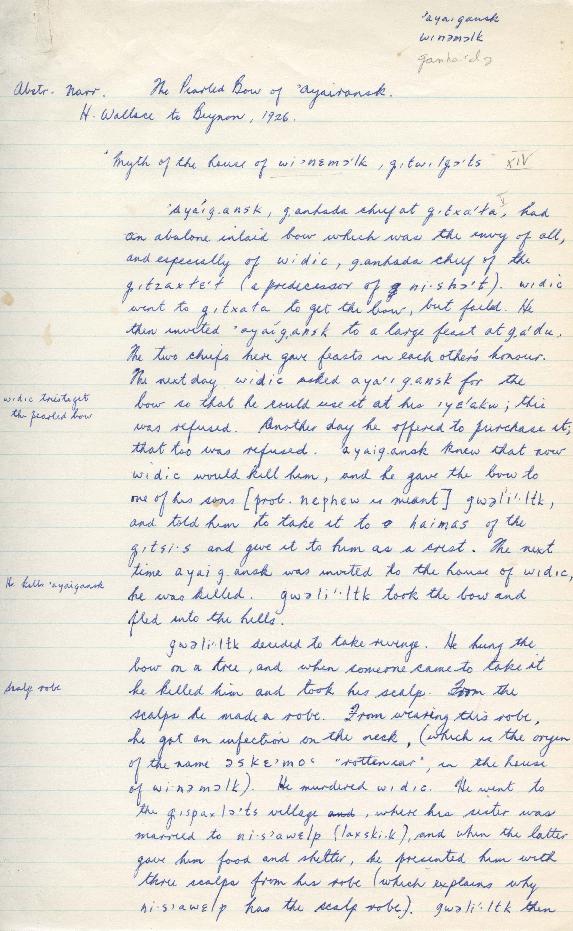 'ayaigansk
winəməlk
ganha'də
Abstr. Narr. The Pearled Bow of 'ayairansk.
H. Wallace to Beynon, 1926.
'Myth of the house of wi·nɛmɔ'lk, gɩtwɩlgɔ'ts XIV
'Ayaíg.ansk, g.anhada chief at gɩtxa'ła, had
an abalone inlaid bow which was the envy of all,
and especially of widic, g.anhada chief of the
gɩtzaxłɛ'ł (a predecessor of ni·shɔ't). widic
went to gɩtxała to get the bow, but failed. He
then invited 'ayaíg.ansk to a large feast at g.a'du.
The two chiefs here gave feasts in each other's honour.
The next day widic asked aya'ig.ansk for the
widic tries to get
the pearled bow
bow so that he could use it at his ɩyɛ'akw; this
was refused. Another day he offered to purchase it;
that too was refused. ayaig.ansk knew that now
widic would kill him, and he gave the bow to
one of his sons [prob. nephew is meant] gwəli'·ltk,
and told him to take it to haimas of the
gɩtsi·s and give it to him as a crest. The next
time ayaig.ansk was invited to the house of widic,
He kills 'ayaigansk
he was killed. gwəli'·ltk took the bow and
fled into the hills.
gwəli'·ltk decided to take revenge. He hung the
bow on a tree, and when someone came to take it
scalp robe
he killed him and took his scalp. From the
scalps he made a robe. From wearing this robe,
he got an infection on the neck, (which is the origin
of the name əskɛ'mɔs "rotten ear", in the house
of wi·nəməlk). He murdered widic. He went to
the gɩspaxlɔ'ts village and, where his sister was
married to ni·s'awɛlp (laxskɩ·k), and when the latter
gave him food and shelter, he presented him with
three scalps from his robe (which explains why
ni·s'awɛlp has the scalp robe). gwəli'·ltk then